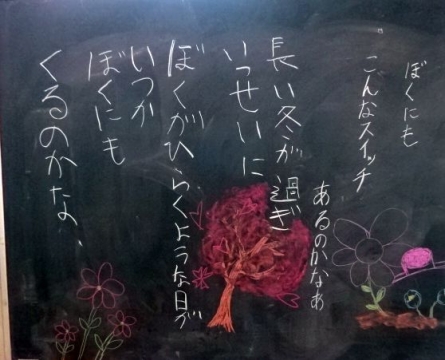 ぼくにも
こんなスイッチ
あるのかなあ
長い冬が過ぎ
いっせいに
ぼくがひらくような日が
いつか
ぼくにも
くるのかな、